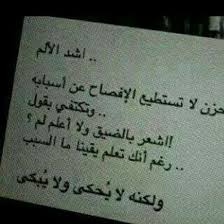 .. أشد الألم
حزن لا تستطيع الإفصاح عن أسبابه
.. وتكتفي بقول
أشعر بالضيق ولا أعلم لم ؟
.. رغم أنك تعلم يقينا ما السبب
ولكنه لا يُحكى ولا يُبكى